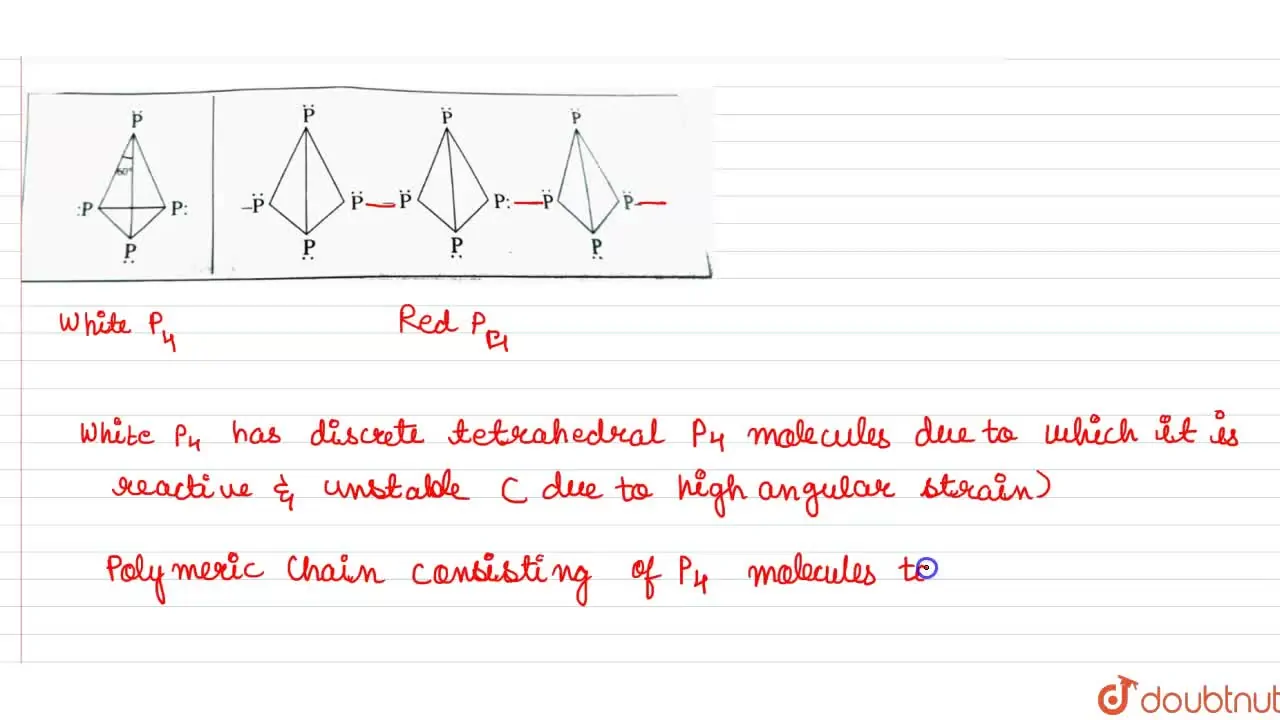 P̈ P̈ P̈ P̈
60°
:P P: –P̈ P̈ — P̈ P: — P̈ P̈ —
P P P P
White P4 Red P4
White P4 has discrete tetrahedral P4 molecules due to which it is
reactive & unstable ( due to high angular strain)
Polymeric Chain consisting of P4 molecules to
doubtnut